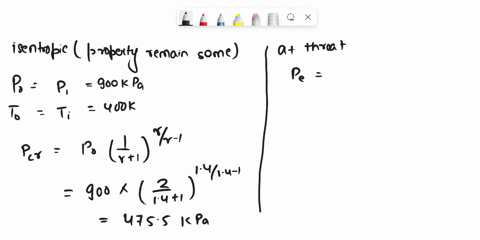 isentropic (property remain some)
P₀ = P₁ = 900 K Pa
T₀ = Tᵢ = 400K
Pcr = P₀ (1/r+1)^r/r-1
= 900 × (2/1.4+1)^1.4/1.4-1
= 475.5 K Pa
at throat
Pe =